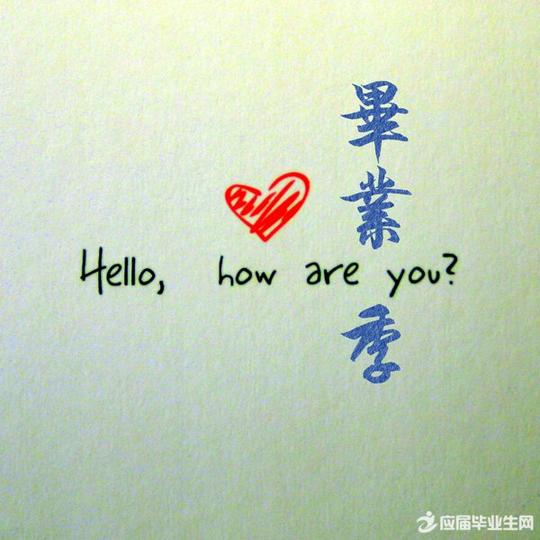 畢業季
Hello, how are you?
应届毕业生网